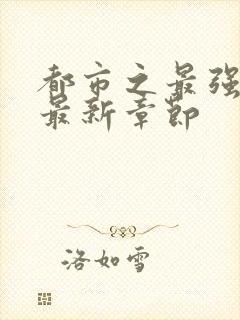 都市之最强
最新章节
洛如雪